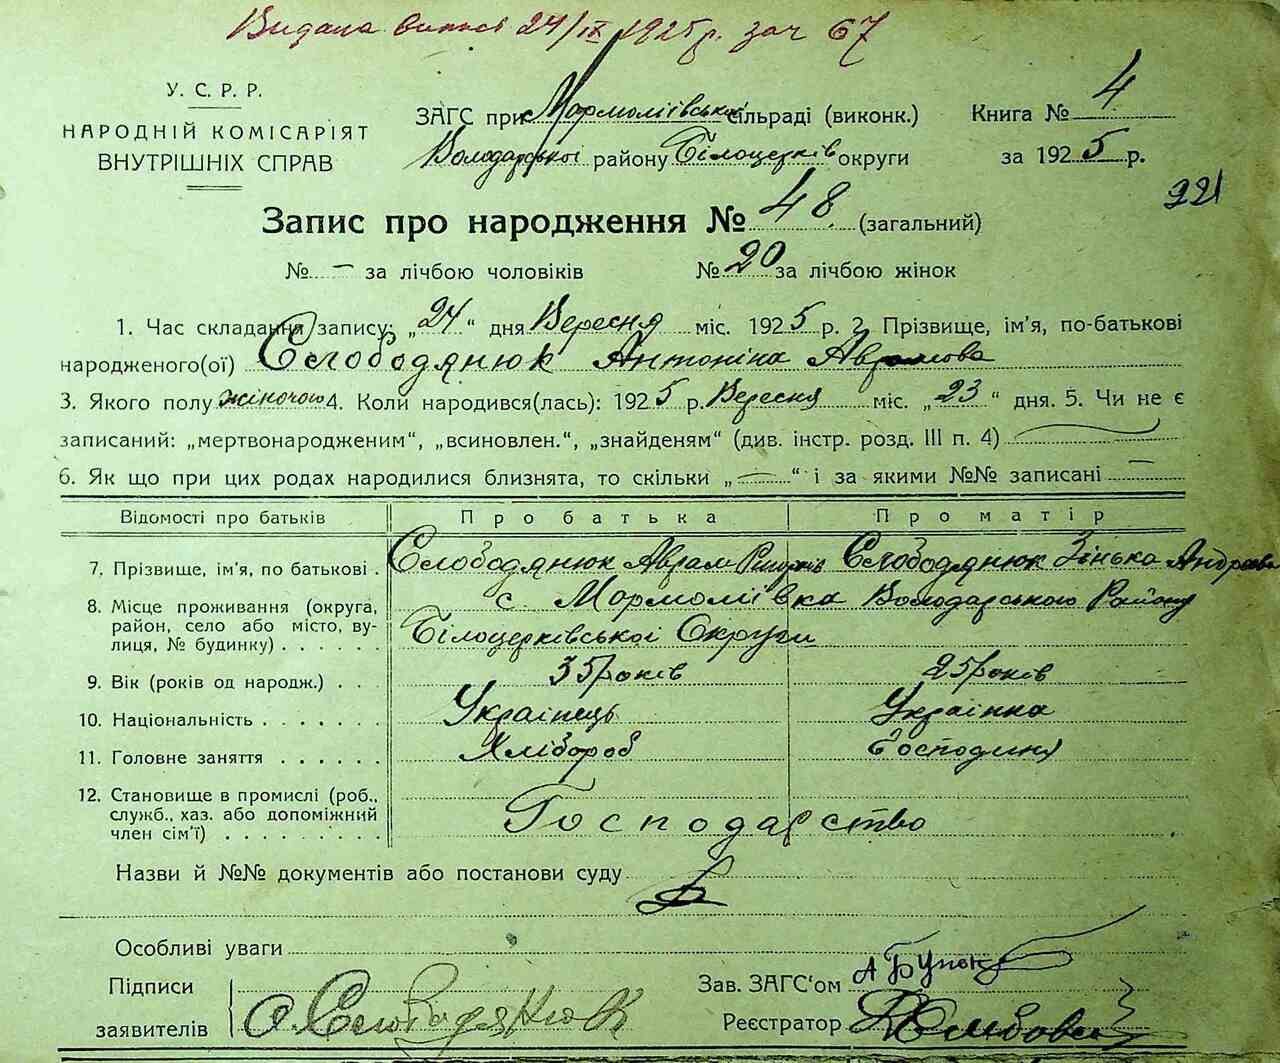 Видана виписі 24/IX 1925 р. за № 67
У. С. Р. Р.
НАРОДНІЙ КОМІСАРІЯТ
ВНУТРІШНІХ СПРАВ
ЗАГС при Мормоліївської сільраді (виконк.)
Володарської району Білоцерків округи
Книга № 4
за 1925 р.
221
Запис про народження № 48 (загальний)
№ – за лічбою чоловіків № 20 за лічбою жінок
1. Час складання запису: „24“ дня Вересня міс. 1925 р. 2. Прізвище, ім'я, по-батькові
народженого(ої) Слободянюк Антоніна Аврамова
3. Якого полу жіночою 4. Коли народився(лась): 1925 р. Вересня міс. „23“ дня. 5. Чи не є
записаний: „мертвонародженим“, „всиновлен.“, „знайденям“ (див. інстр. розд. III п. 4)
6. Як що при цих родах народилися близнята, то скільки „—“ і за якими №№ записані —
Відомості про батьків Про батька Про матір
7. Прізвище, ім'я, по батькові . Слободянюк Аврам Слободянюк Зінька Андреева
8. Місце проживання (округа, с. Мормоліївка Володарською Району
район, село або місто, ву-
лиця, № будинку) . . . . . . Білоцерківської Округи
9. Вік (років од народж.) . . 35 років 25 років
10. Національність . . . . . . . Українець Українка
11. Головне заняття . . . . . . Хлібороб Господиня
12. Становище в промислі (роб.,
служб., хаз. або допоміжний Господарство
член сім'ї) . . . . . . . . .
Назви й №№ документів або постанови суду
Особливі уваги
Підписи
заявителів
О. Слободянюк
Зав. ЗАГС'ом А
Реєстратор